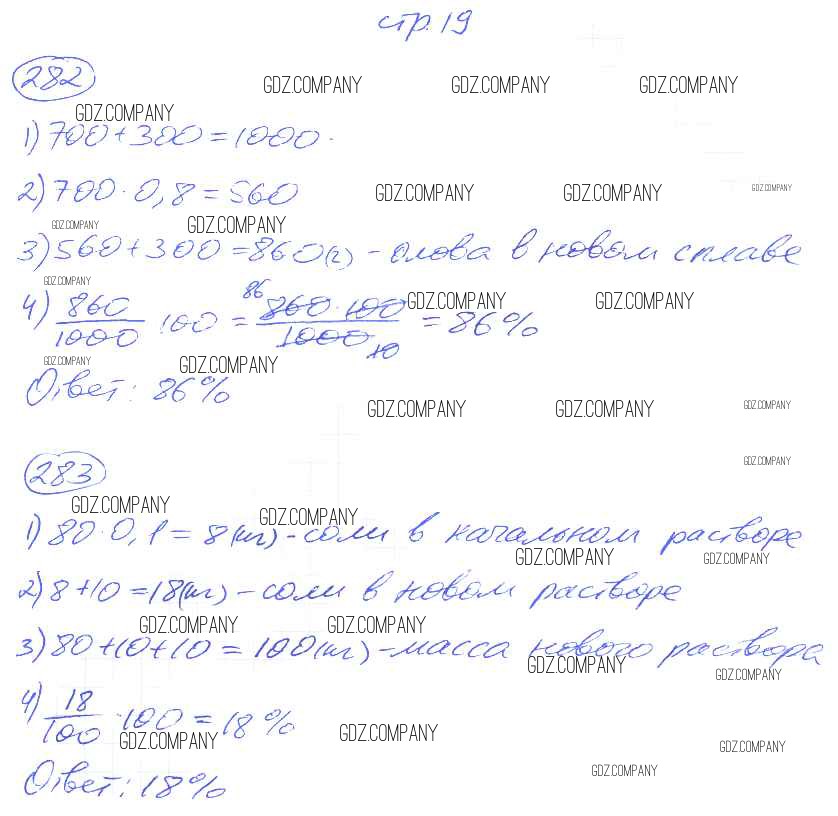 стр. 19
282
GDZ.COMPANY GDZ.COMPANY GDZ.COMPANY
GDZ.COMPANY
1) 700 + 300 = 1000.
2) 700 · 0,8 = 560
GDZ.COMPANY GDZ.COMPANY GDZ.COMPANY
GDZ.COMPANY GDZ.COMPANY
3) 560 + 300 = 860 (г) - олова в новом сплаве
GDZ.COMPANY
4) 860/1000 · 100 = 86 860 · 100/1000 10 = 86%
GDZ.COMPANY GDZ.COMPANY
GDZ.COMPANY GDZ.COMPANY
Ответ: 86%
GDZ.COMPANY GDZ.COMPANY GDZ.COMPANY
283
GDZ.COMPANY
GDZ.COMPANY
GDZ.COMPANY
1) 80 · 0,1 = 8 (кг) - соли в начальном растворе
GDZ.COMPANY GDZ.COMPANY
2) 8 + 10 = 18 (кг) - соли в новом растворе
GDZ.COMPANY GDZ.COMPANY
3) 80 + 10 + 10 = 100 (кг) - масса нового раствора
GDZ.COMPANY GDZ.COMPANY
4) 18/100 · 100 = 18%
GDZ.COMPANY GDZ.COMPANY GDZ.COMPANY
GDZ.COMPANY
Ответ: 18%